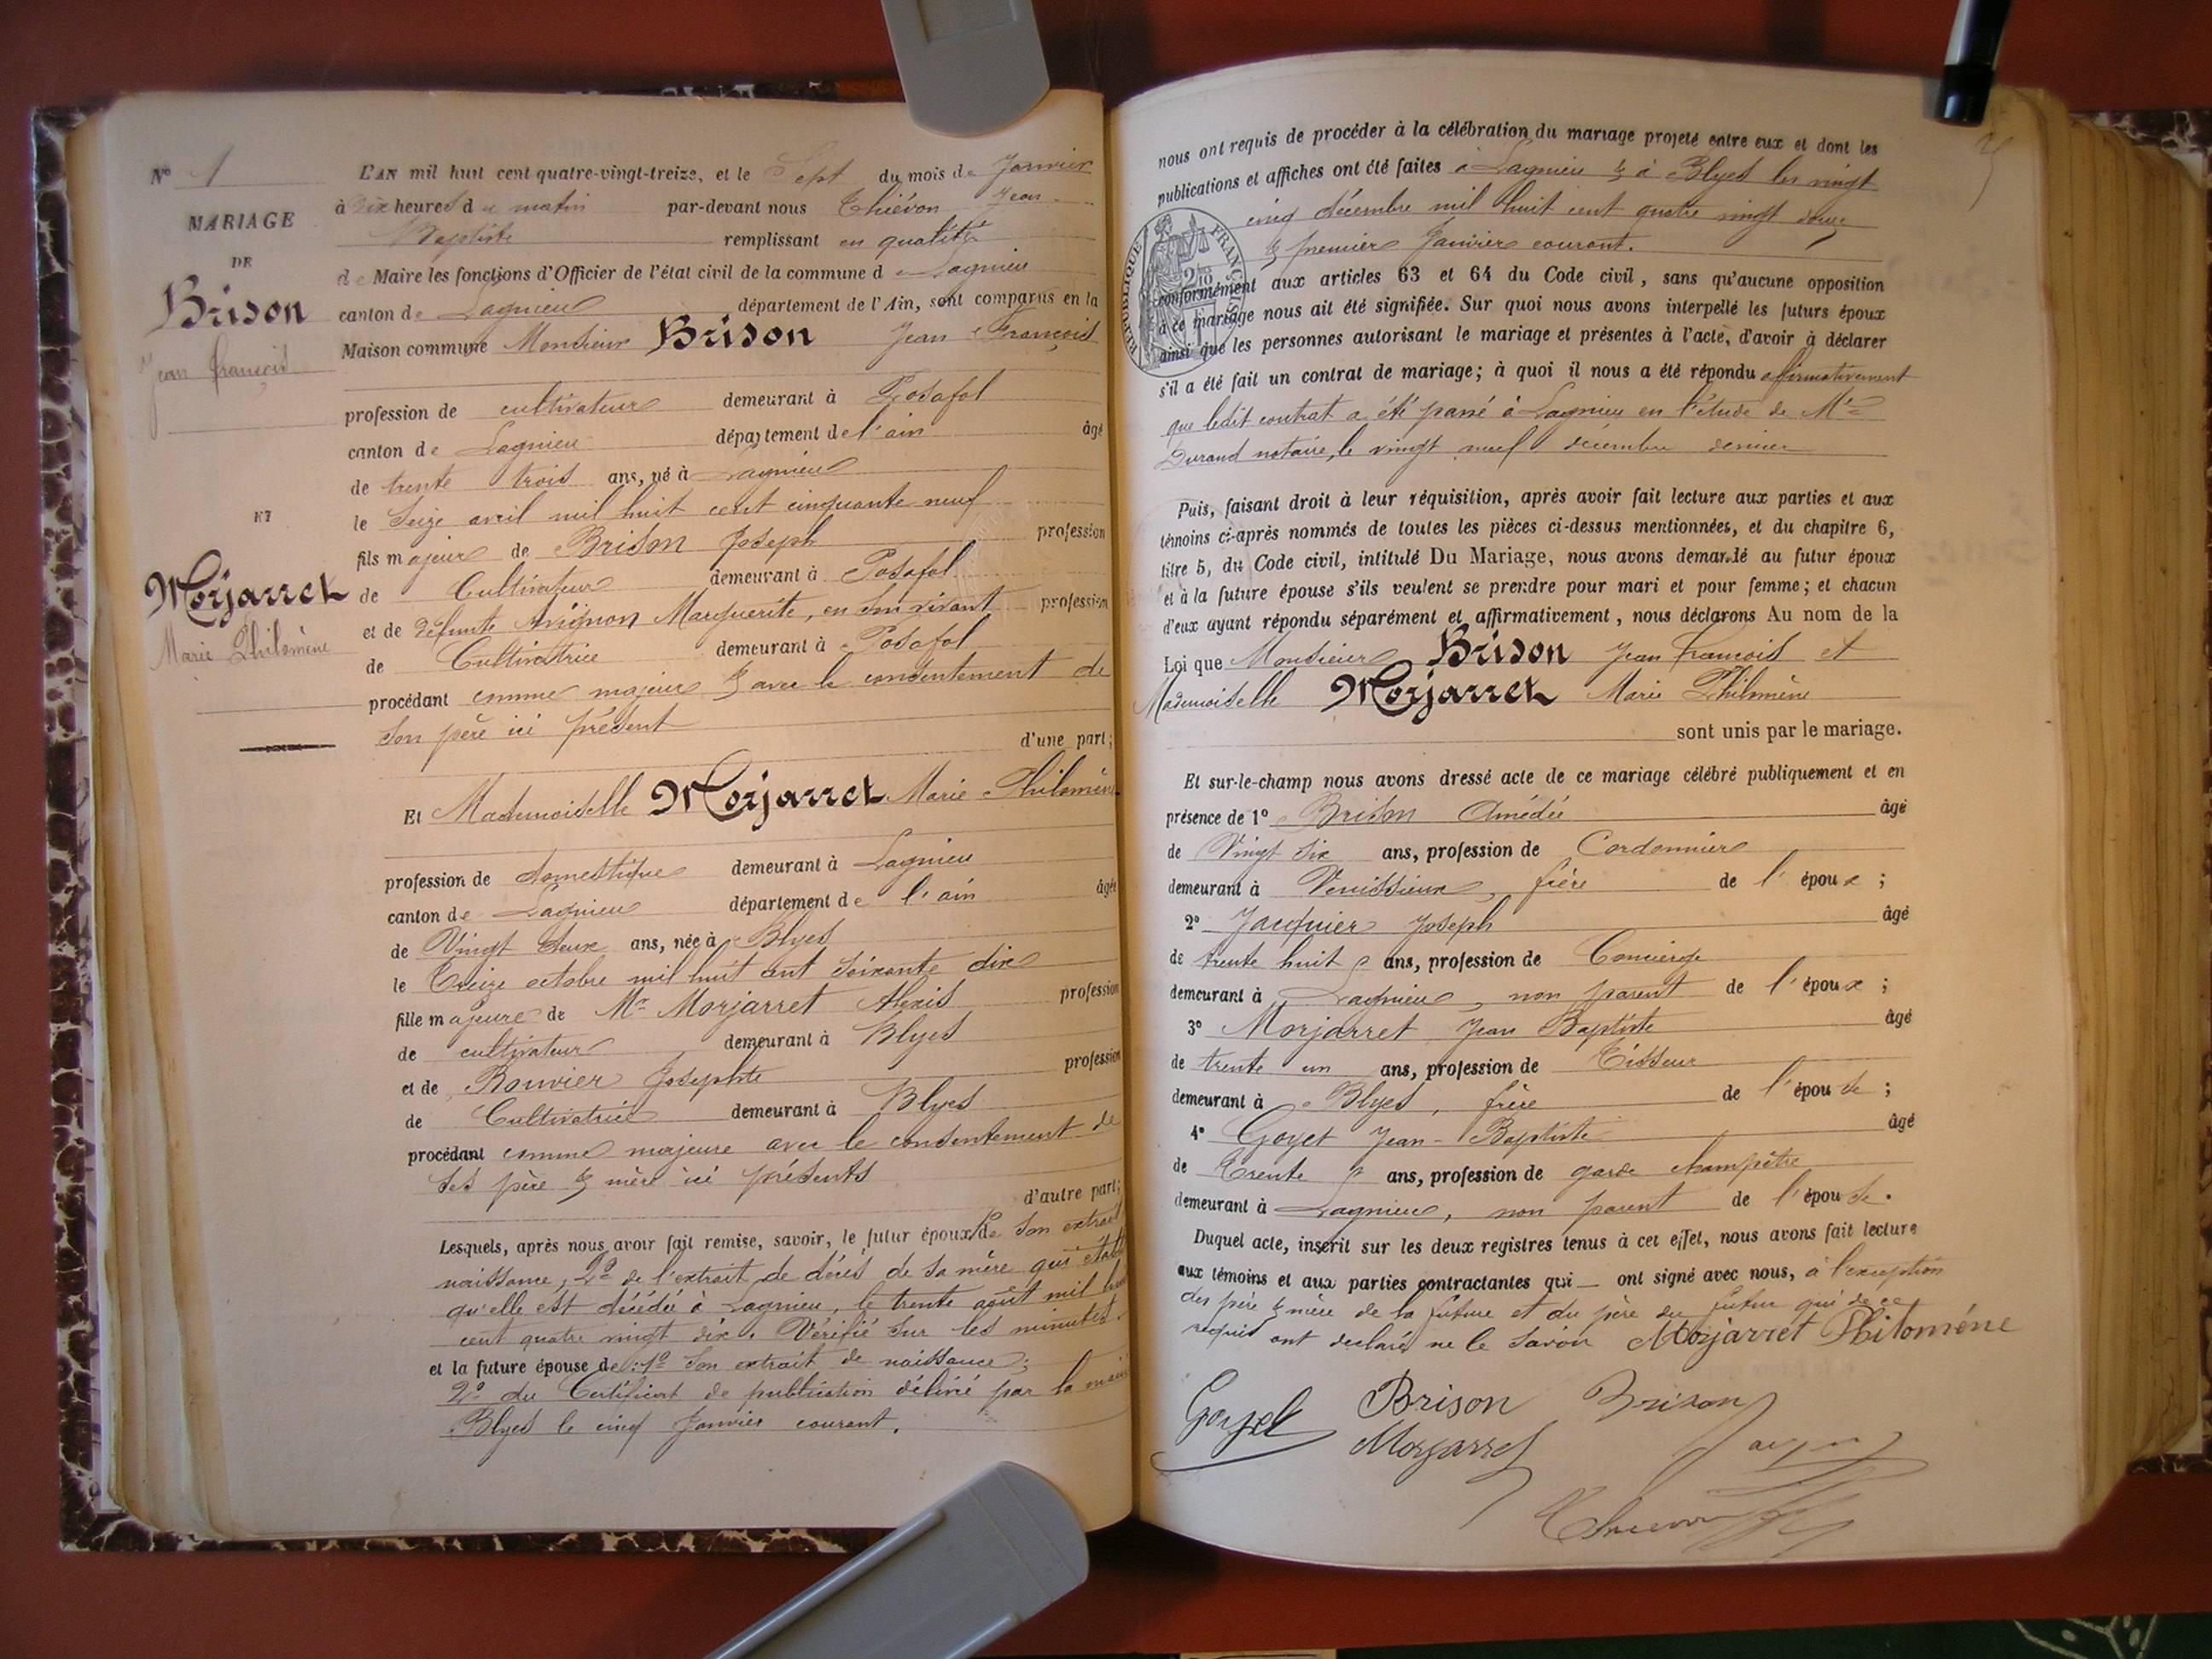 N° 1
MARIAGE
DE
Brison
Jean François
ET
Morjarret
Marie Philomène
L'AN mil huit cent quatre-vingt-treize, et le Sept du mois de Janvier
à dix heures du matin par-devant nous Thiévon Jean
Baptiste remplissant en qualité
de Maire les fonctions d'Officier de l'état civil de la commune de Lagnieu
canton de Lagnieu département de l'Ain, sont comparus en la
Maison commune Monsieur Brison Jean François
profession de cultivateur demeurant à Posafol
canton de Lagnieu département de l'ain âgé
de trente trois ans, né à Lagnieu
le Seize avril mil huit cent cinquante neuf
fils majeur de Brison Joseph profession
de Cultivateur demeurant à Posafol
et de défunte Avignon Marguerite, en son vivant profession
de Cultivatrice demeurant à Posafol
procédant comme majeur & avec le consentement de
son père ici présent
d'une part;
Et Mademoiselle Morjarret Marie Philomène
profession de domestique demeurant à Lagnieu
canton de Lagnieu département de l'ain âgée
de Vingt deux ans, née à Blyes
le Treize octobre mil huit cent soixante dix
fille majeure de Mr Morjarret Alexis profession
de cultivateur demeurant à Blyes
et de Bouvier Josephte profession
de Cultivatrice demeurant à Blyes
procédant comme majeure avec le consentement de
ses père & mère ici présents
d'autre part;
Lesquels, après nous avoir fait remise, savoir, le futur époux 1° de son extrait
naissance, 2° de l'extrait de décès de sa mère qui
qu'elle est décédée à Lagnieu, le trente août mil
cent quatre vingt dix. Vérifié sur les minutes.
et la future épouse de: 1° son extrait de naissance;
2° du Certificat de publication délivré par la
Blyes le cinq Janvier courant.
nous ont requis de procéder à la célébration du mariage projeté entre eux et dont les
publications et affiches ont été faites à Lagnieu & à Blyes les vingt
cinq décembre mil huit cent quatre vingt douze
& premier Janvier courant.
RÉPUBLIQUE FRANÇAISE
conformément aux articles 63 et 64 du Code civil, sans qu'aucune opposition
à ce mariage nous ait été signifiée. Sur quoi nous avons interpellé les futurs époux
ainsi que les personnes autorisant le mariage et présentes à l'acte, d'avoir à déclarer
s'il a été fait un contrat de mariage; à quoi il nous a été répondu affirmativement
que ledit contrat a été passé à Lagnieu en l'étude de Me
Durand notaire, le vingt neuf décembre dernier
Puis, faisant droit à leur réquisition, après avoir fait lecture aux parties et aux
témoins ci-après nommés de toutes les pièces ci-dessus mentionnées, et du chapitre 6,
titre 5, du Code civil, intitulé Du Mariage, nous avons demandé au futur époux
et à la future épouse s'ils veulent se prendre pour mari et pour femme; et chacun
d'eux ayant répondu séparément et affirmativement, nous déclarons Au nom de la
Loi que Monsieur Brison Jean François et
Mademoiselle Morjarret Marie Philomène
sont unis par le mariage.
Et sur-le-champ nous avons dressé acte de ce mariage célébré publiquement et en
présence de 1° Brison Amédée âgé
de Vingt six ans, profession de Cordonnier
demeurant à Venissieux, frère de l'époux;
2° Jacquier Joseph âgé
de trente huit ans, profession de Concierge
demeurant à Lagnieu, non parent de l'époux;
3° Morjarret Jean Baptiste âgé
de trente un ans, profession de Tisseur
demeurant à Blyes, frère de l'épouse;
4° Goyet Jean-Baptiste âgé
de Trente ans, profession de garde champêtre
demeurant à Lagnieu, non parent de l'épouse.
Duquel acte, inscrit sur les deux registres tenus à cet effet, nous avons fait lecture
aux témoins et aux parties contractantes qui ont signé avec nous, à l'exception
des père & mère de la future et du père du futur qui de ce
requis ont déclaré ne le savoir Morjarret Philomène
Goyet Brison Brison
Morjarret